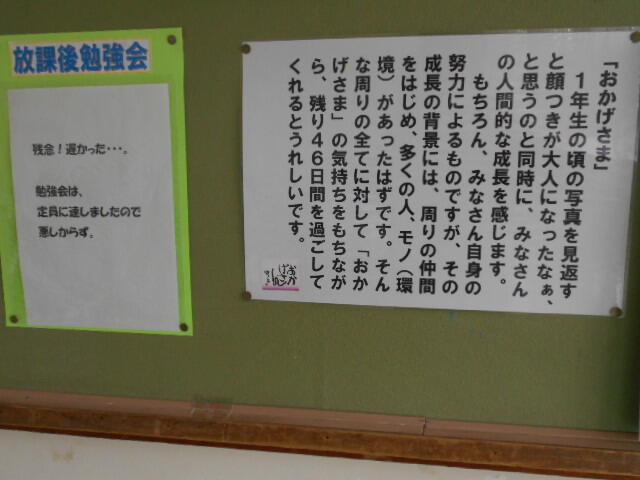 放課後勉強会
残念！遅かった・・・。
勉強会は、
定員に達しましたので
悪しからず。
「おかげさま」
１年生の頃の写真を見返す
と顔つきが大人になったなぁ、
と思うのと同時に、みなさん
の人間的な成長を感じます。
もちろん、みなさん自身の
努力によるものですが、その
成長の背景には、周りの仲間
をはじめ、多くの人、モノ（環
境）があったはずです。そん
な周りの全てに対して「おか
げさま」の気持ちをもちなが
ら、残り４６日間を過ごして
くれるとうれしいです。